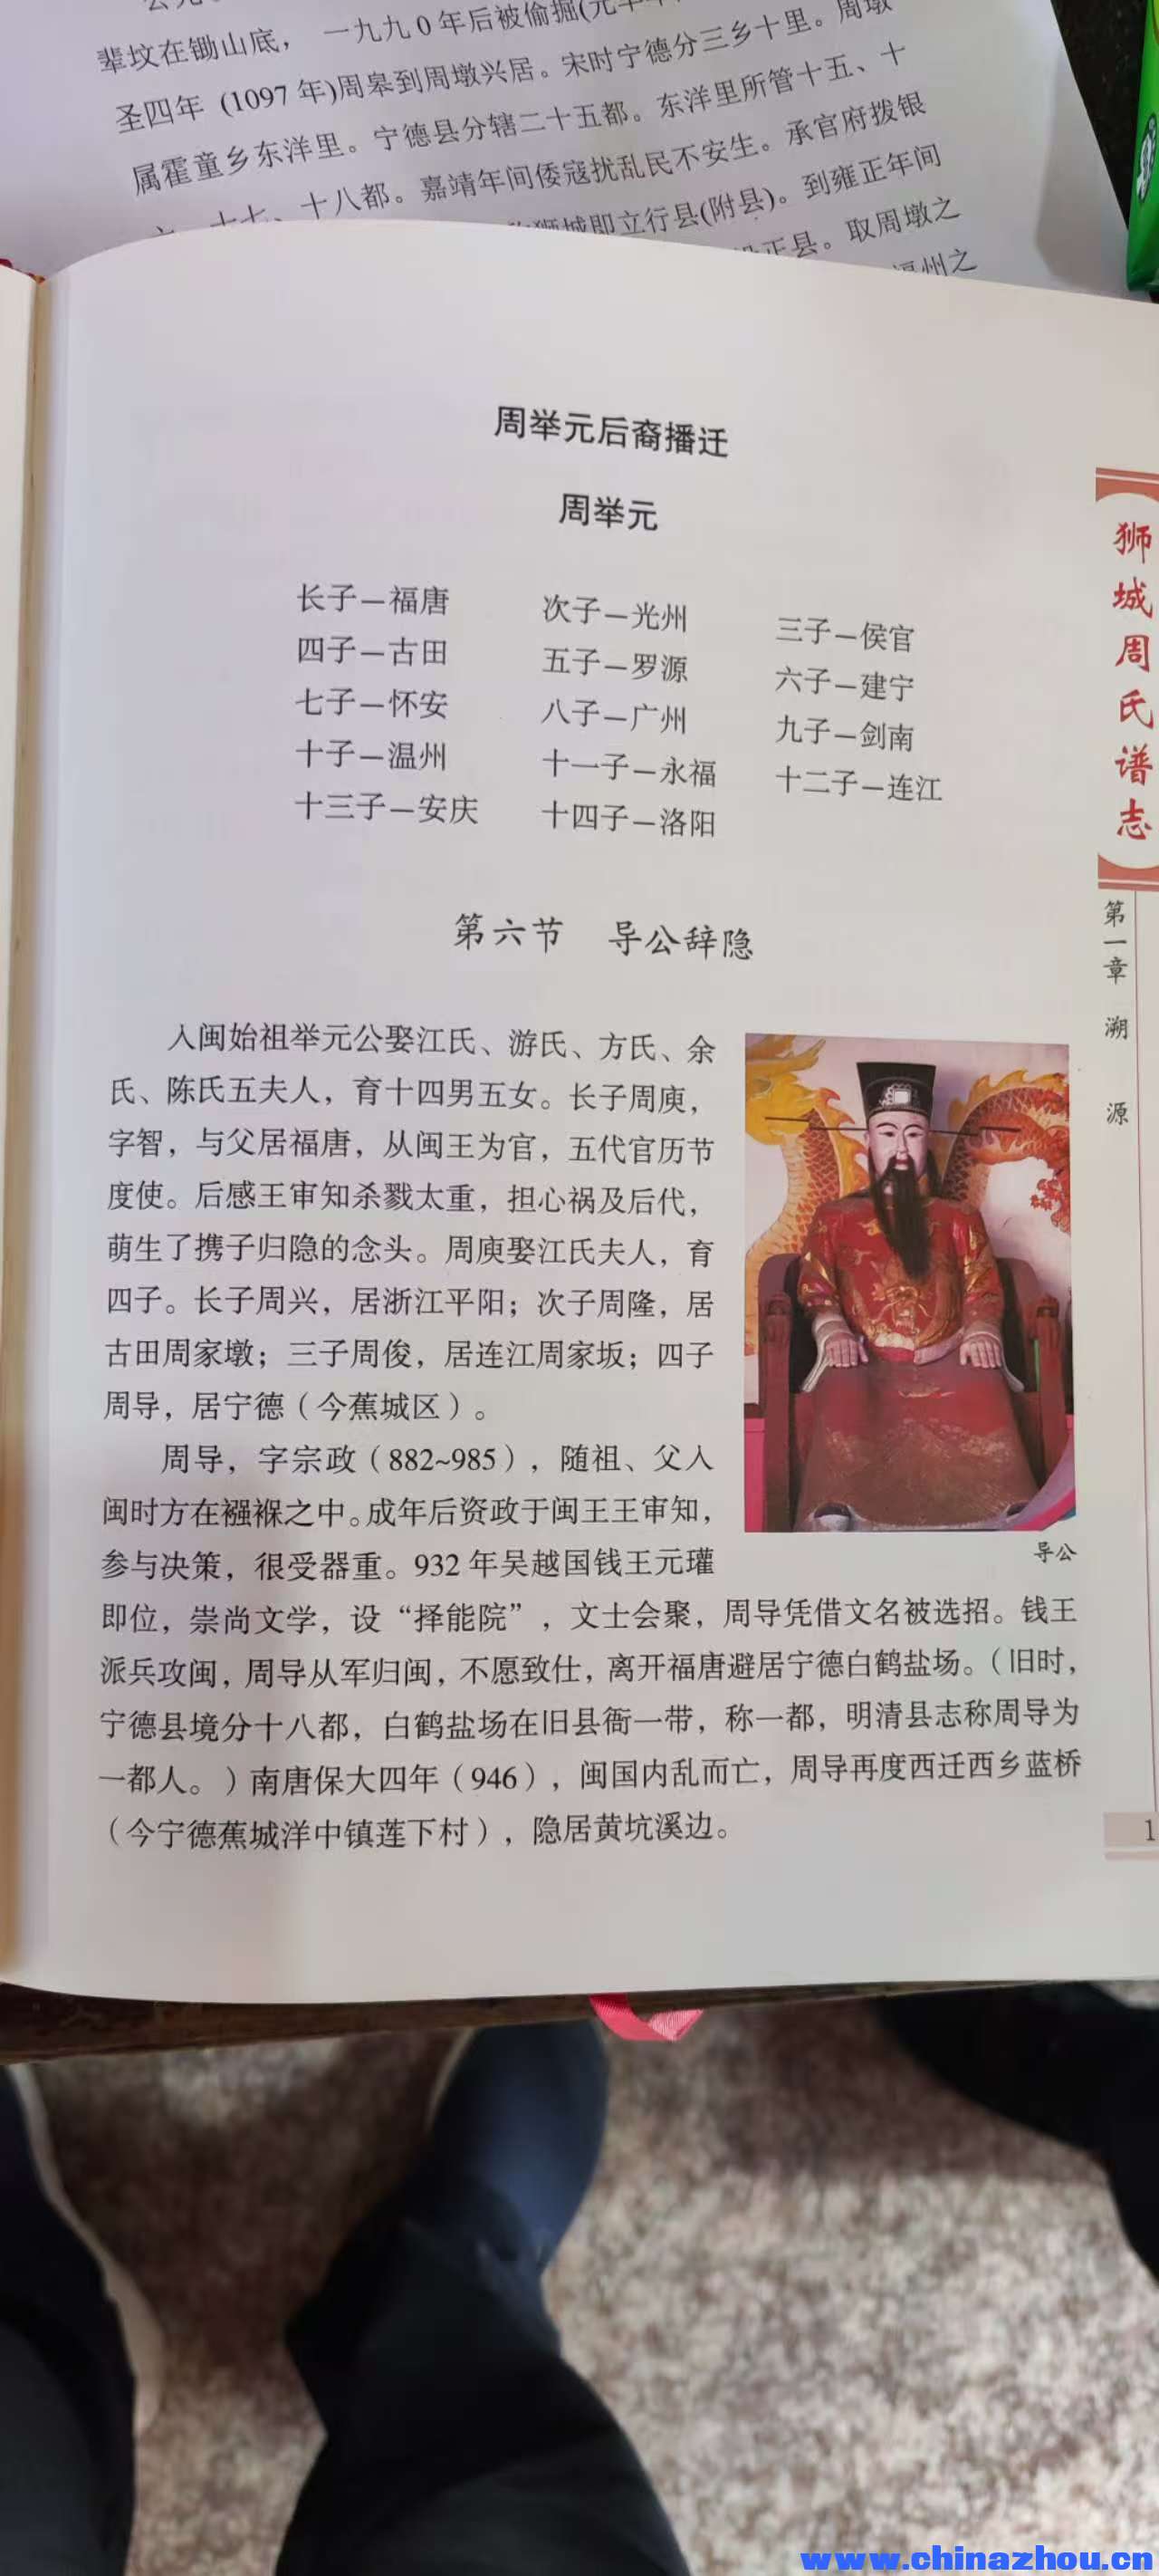 辈坟在锄山底， 一九九0年后被偷掘
圣四年 (1097年)周皋到周墩兴居。宋时宁德分三乡十里。周墩
属霍童乡东洋里。宁德县分辖二十五都。东洋里所管十五、十
十七、十八都。嘉靖年间倭寇扰乱民不安生。承官府拨银
狮城即立行县(附县)。到雍正年间
正县。取周墩之
福州之
周举元后裔播迁
周举元
长子—福唐 次子—光州 三子—侯官
四子—古田 五子—罗源 六子—建宁
七子—怀安 八子—广州 九子—剑南
十子—温州 十一子—永福 十二子—连江
十三子—安庆 十四子—洛阳
第六节 导公辞隐
入闽始祖举元公娶江氏、游氏、方氏、余
氏、陈氏五夫人，育十四男五女。长子周庾，
字智，与父居福唐，从闽王为官，五代官历节
度使。后感王审知杀戮太重，担心祸及后代，
萌生了携子归隐的念头。周庾娶江氏夫人，育
四子。长子周兴，居浙江平阳；次子周隆，居
古田周家墩；三子周俊，居连江周家坂；四子
周导，居宁德（今蕉城区）。
周导，字宗政（882~985），随祖、父入
闽时方在襁褓之中。成年后资政于闽王王审知，
参与决策，很受器重。932年吴越国钱王元瓘
即位，崇尚文学，设“择能院”，文士会聚，周导凭借文名被选招。钱王
派兵攻闽，周导从军归闽，不愿致仕，离开福唐避居宁德白鹤盐场。（旧时，
宁德县境分十八都，白鹤盐场在旧县衙一带，称一都，明清县志称周导为
一都人。）南唐保大四年（946），闽国内乱而亡，周导再度西迁西乡蓝桥
（今宁德蕉城洋中镇莲下村），隐居黄坑溪边。
导公
狮城周氏谱志
第一章 溯源
1
www.chinazhou.cn